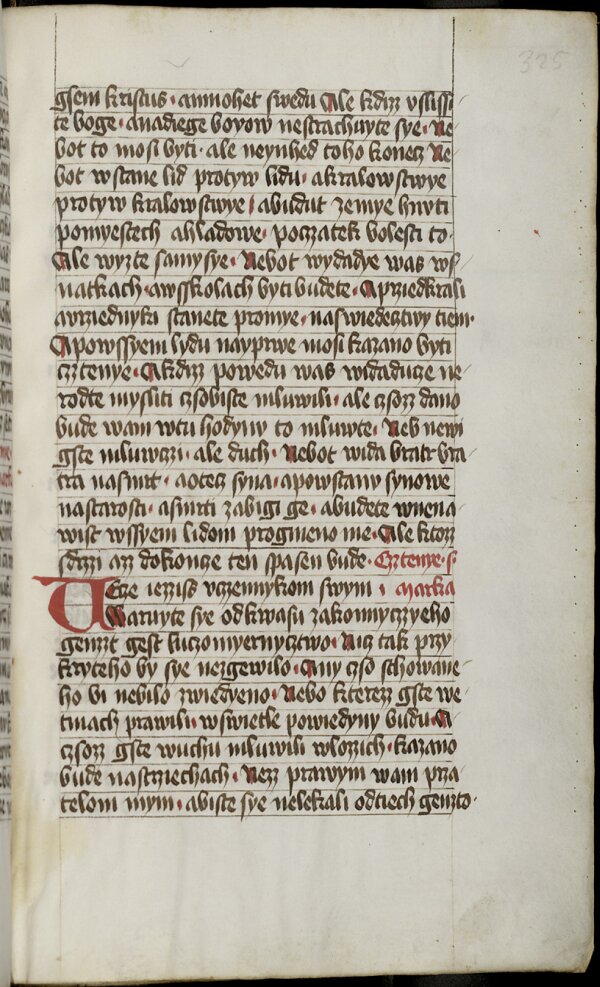 325
gsem kristus · amnohet swedu Ale kdiz vslissi
te boge · anadiege boyow nestrachuyte sye · Ne
bot to mosi byti · ale neynhed toho konecz Ne
bot wstane lid protyw lidu · akralowstwye
protyw kralowstwye · abudut zemye hnuti
pomyestech ahladowe · poczatek bolesti to ·
Ale wyzte samy sye · Nebot wydadye was ws
natkach · awsskolach byti budete · Aprziedkrali
avrziednyki stanete promye · naswiedecztwy tiem ·
Apowssyem lydu nayprwe mosi kazano byti
cztenye · Akdizz powedu was widaducze ne
rodte mysliti czsobiste mluwili · ale czsozz dano
bude wam wtu hodynu to mluwte · Neb newi
gste mluwczi · ale duch · Nebot wida bratr bra
tra nasmrt · aotecz syna · apowstanu synowe
nastarosti · asmrti zabigi ge · abudete wnena
wist wssyem lidom progmeno me · Ale ktozz
sdrzi azz dokoncze ten spasen bude · Cztenye · s ·
Wece iezziss vczennykom swym · marka
Waruyte sye odkwasu zakonnyczyeho
genzt gest luczomyernycztwo · Nicz tak przy
kryteho by sye nezgewilo · Any czso schowane
ho bi nebilo zwiedyeno · Nebo kterezz gste we
tmach prawili · wswietle powiedyny budu · A
czsozz gste wuchu mluwili wlozzich · kazano
bude nastrziechach · Nezz prawym wam prza
telom mym · abiste sye nelekali odtiech genzto ·